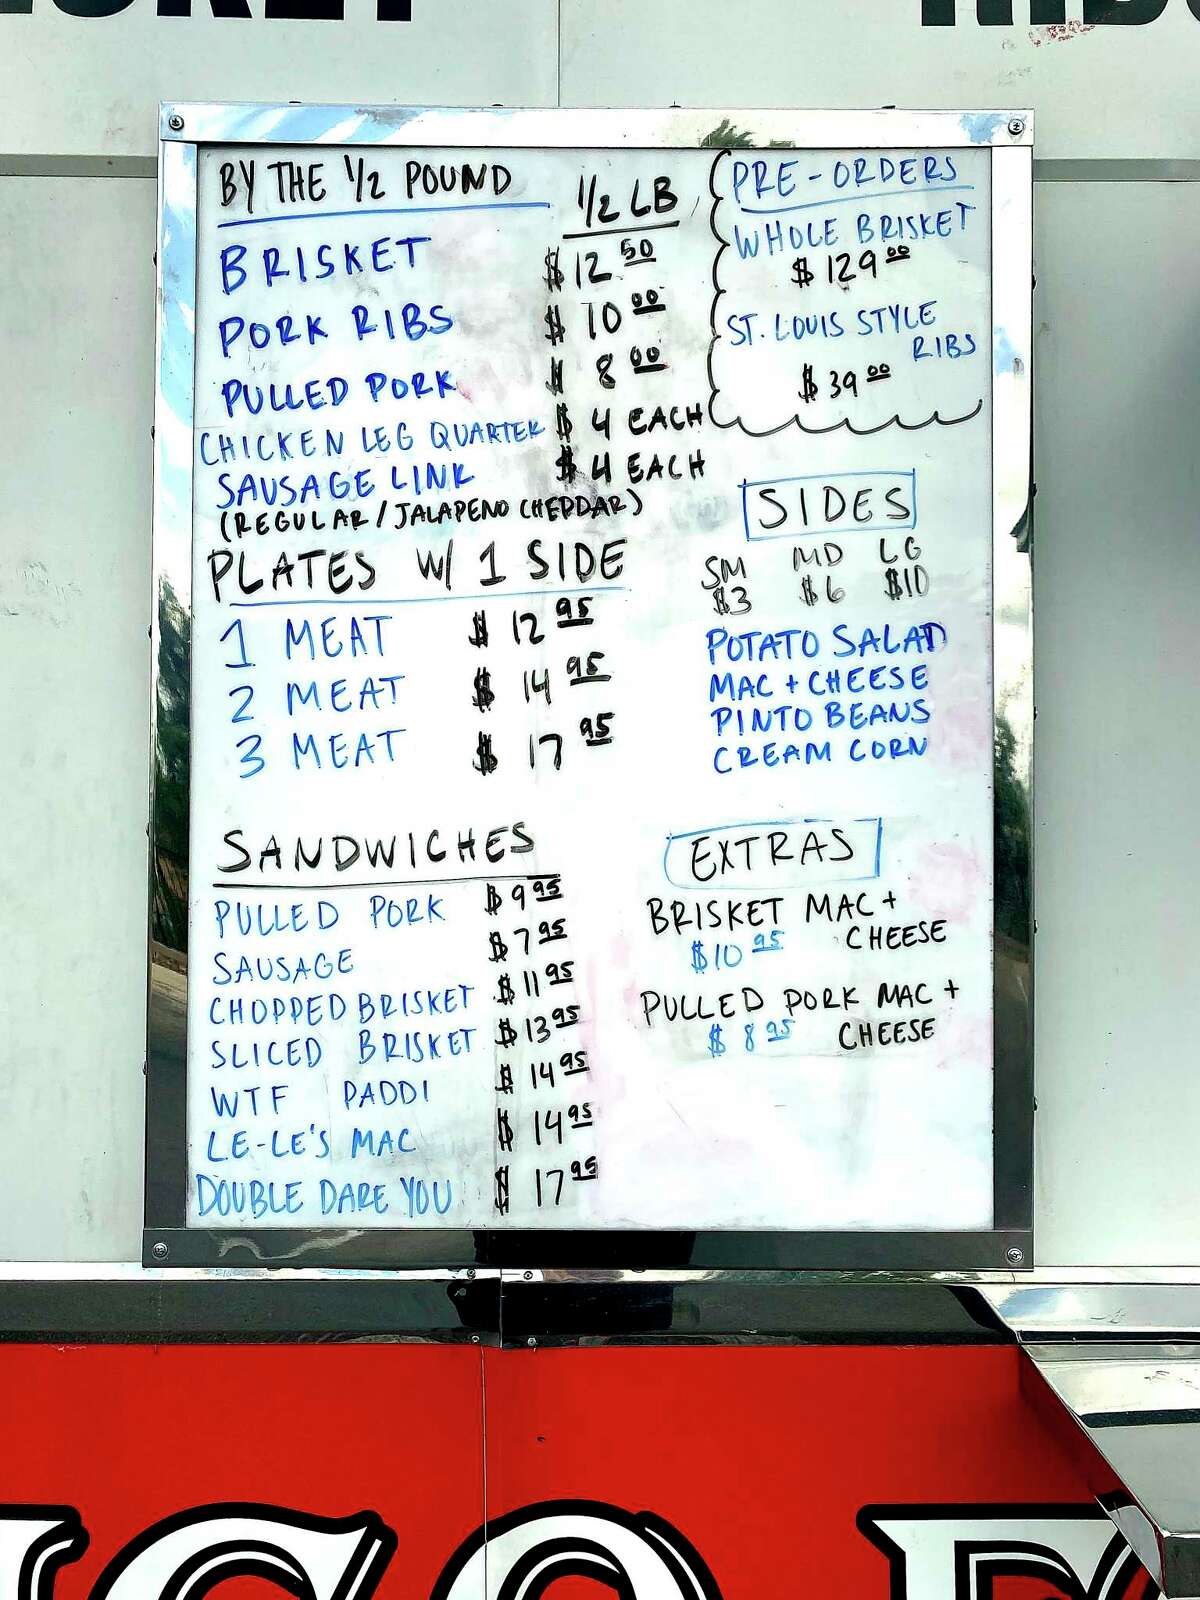 BY THE 1/2 POUND
1/2 LB
BRISKET $12 50
PORK RIBS $10 00
PULLED PORK $8 00
CHICKEN LEG QUARTER $4 EACH
SAUSAGE LINK $4 EACH
(REGULAR / JALAPENO CHEDDAR)
PLATES W/ 1 SIDE
1 MEAT $12 95
2 MEAT $14 95
3 MEAT $17 95
SANDWICHES
PULLED PORK $9 95
SAUSAGE $7 95
CHOPPED BRISKET $11 95
SLICED BRISKET $13 95
WTF PADDI $14 95
LE-LE'S MAC $14 95
DOUBLE DARE YOU $17 95
PRE-ORDERS
WHOLE BRISKET
$129 00
ST. LOUIS STYLE
RIBS
$39 00
SIDES
SM MD LG
$3 $6 $10
POTATO SALAD
MAC + CHEESE
PINTO BEANS
CREAM CORN
EXTRAS
BRISKET MAC +
CHEESE
$10 95
PULLED PORK MAC +
CHEESE
$8 95